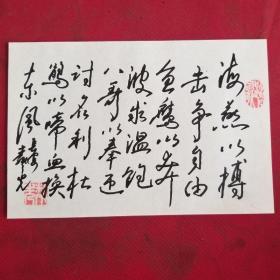 海燕以搏
击争自由
鱼鹰以奔
波求温饱
八哥以奉迎
讨名利杜
鹃以啼血换
东风